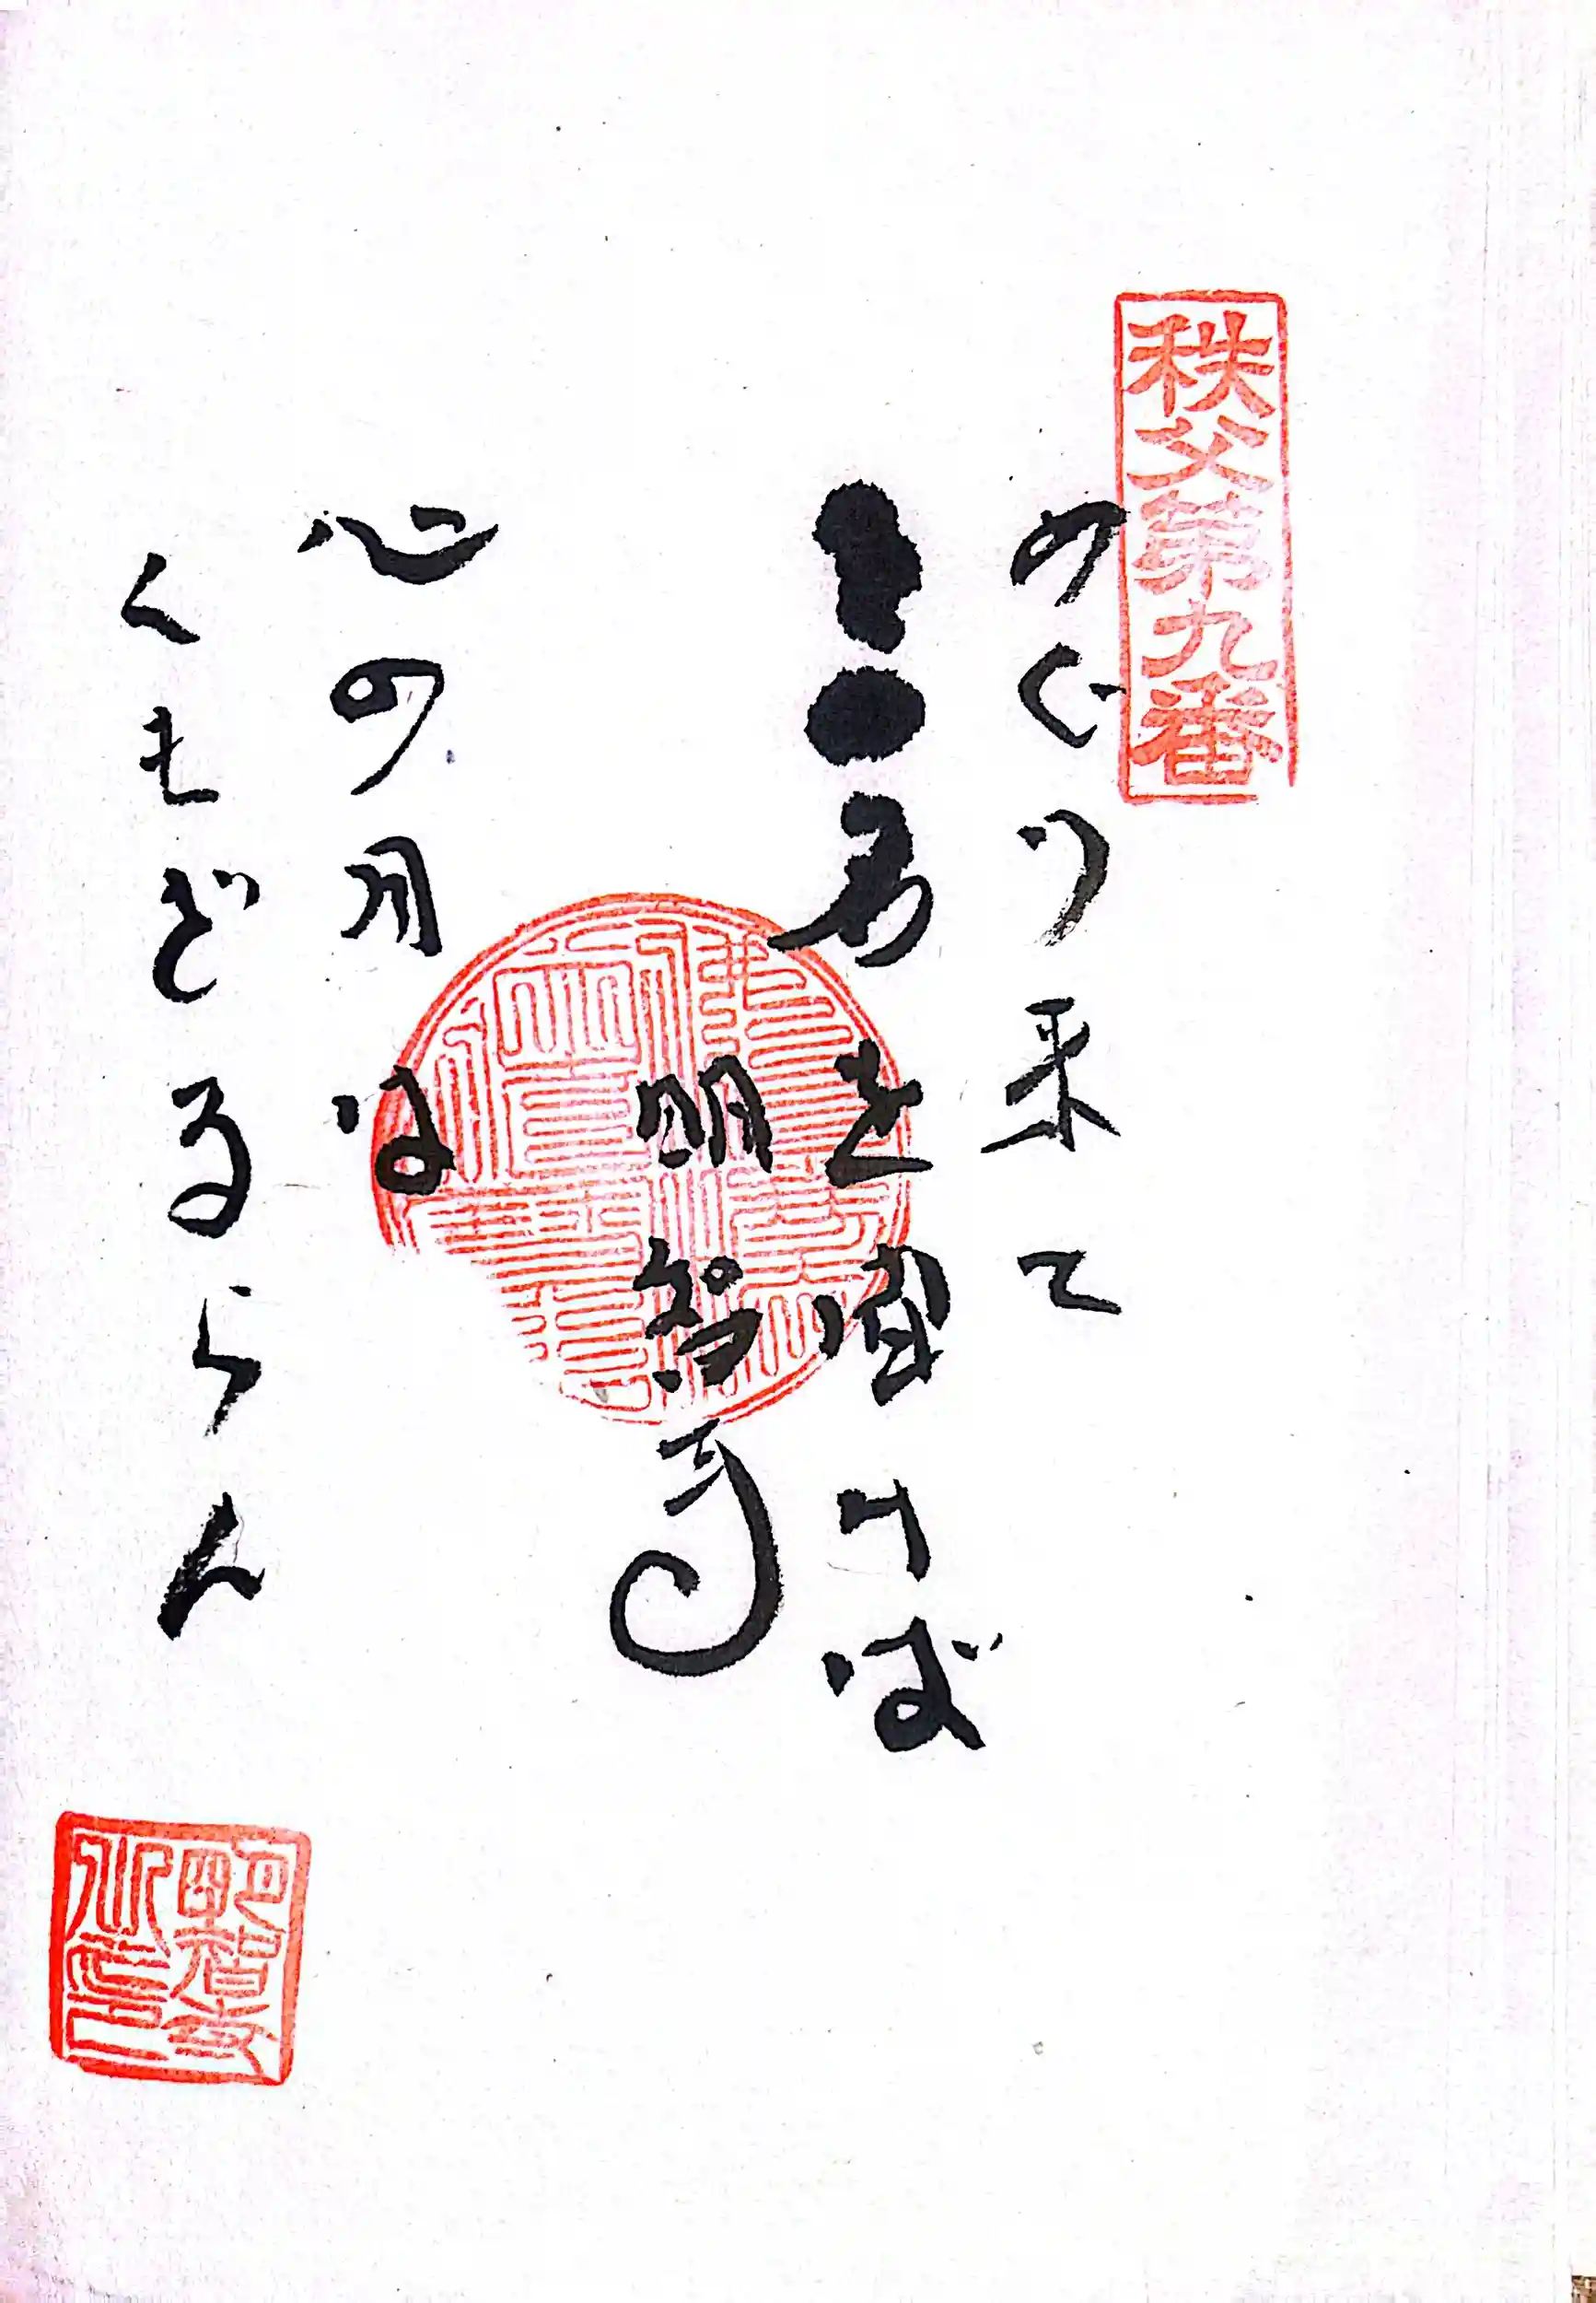 秩父第九番
めぐり来て
名を聞けば
明智寺
心の月は
くもざるらん
明智寺